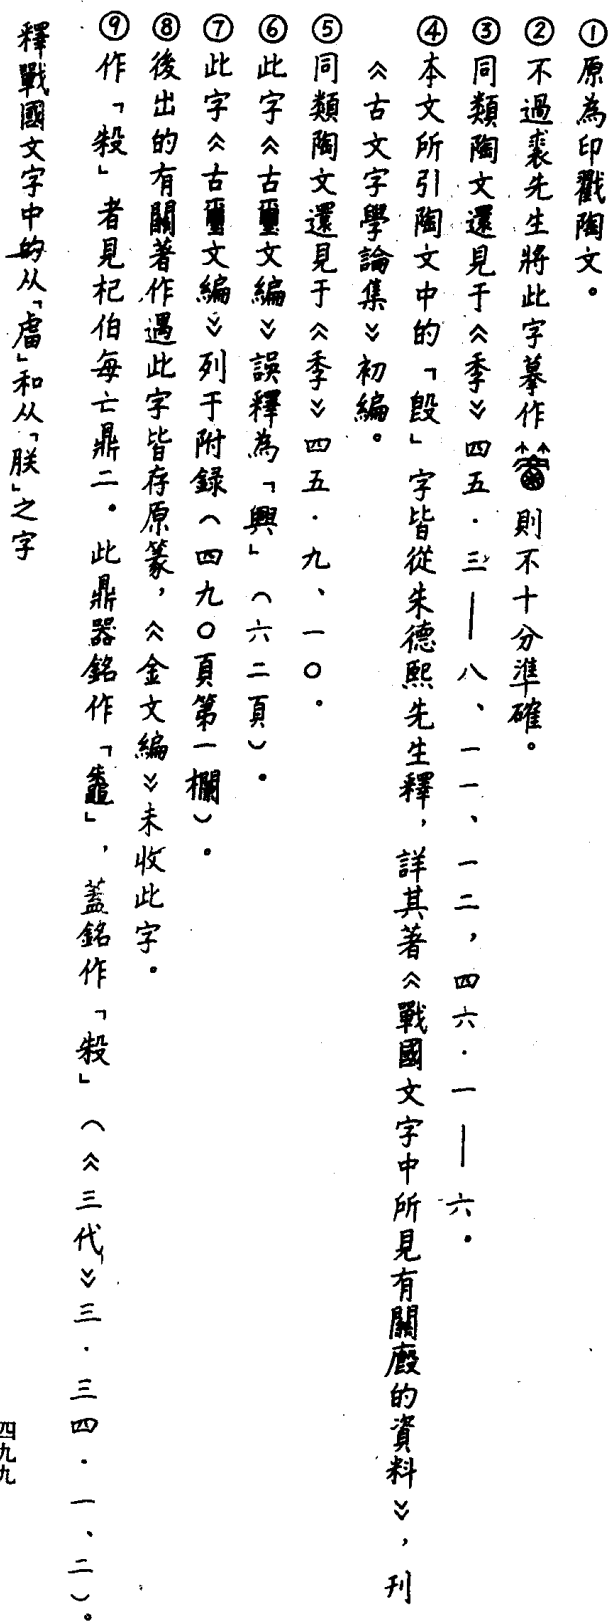 ①原為印戳陶文。
②不過裘先生將此字摹作則不十分準確。
③同類陶文還見于《季》四五·三——八、一一、一二，四六·一——六。
④本文所引陶文中的「㲃」字皆從朱德熙先生釋，詳其著《戰國文字中所見有關廄的資料》，刊
《古文字學論集》初編。
⑤同類陶文還見于《季》四五·九、一〇。
⑥此字《古璽文編》誤釋為「興」（六二頁）。
⑦此字《古璽文編》列于附錄（四九〇頁第一欄）。
⑧後出的有關著作遇此字皆存原篆，《金文編》未收此字。
⑨作「」者見杞伯每亡鼎二。此鼎器銘作「」，蓋銘作「」（《三代》三·三四·一、二）。
釋戰國文字中的从「虘」和从「朕」之字
四九九